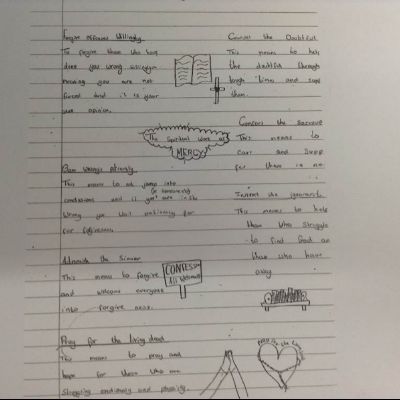 Forgive offences Willingly
To forgive those who have
done you wrong willingly
knowing you are not
forced and it is your
own opinion.
Counsel the Doubtful
This means to help
the doubtful through
tough times and
them.
The Spiritual Work of
MERCY
Comfort the
This means to
care and
for them in
Bear Wrongs patiently
This means to not jump into
conclusions and if
wrong you wait patiently for
for
Instruct the ignorant
This means to help
those who struggle
to find God or
those who have
away
Admonish the Sinner
This means to forgive
and welcome everyone
into forgive ness.
CONFESS
All Welcome
Pray for the living dead
This means to pray and
hope for those who are
struggling emotionaly and
Pray for the